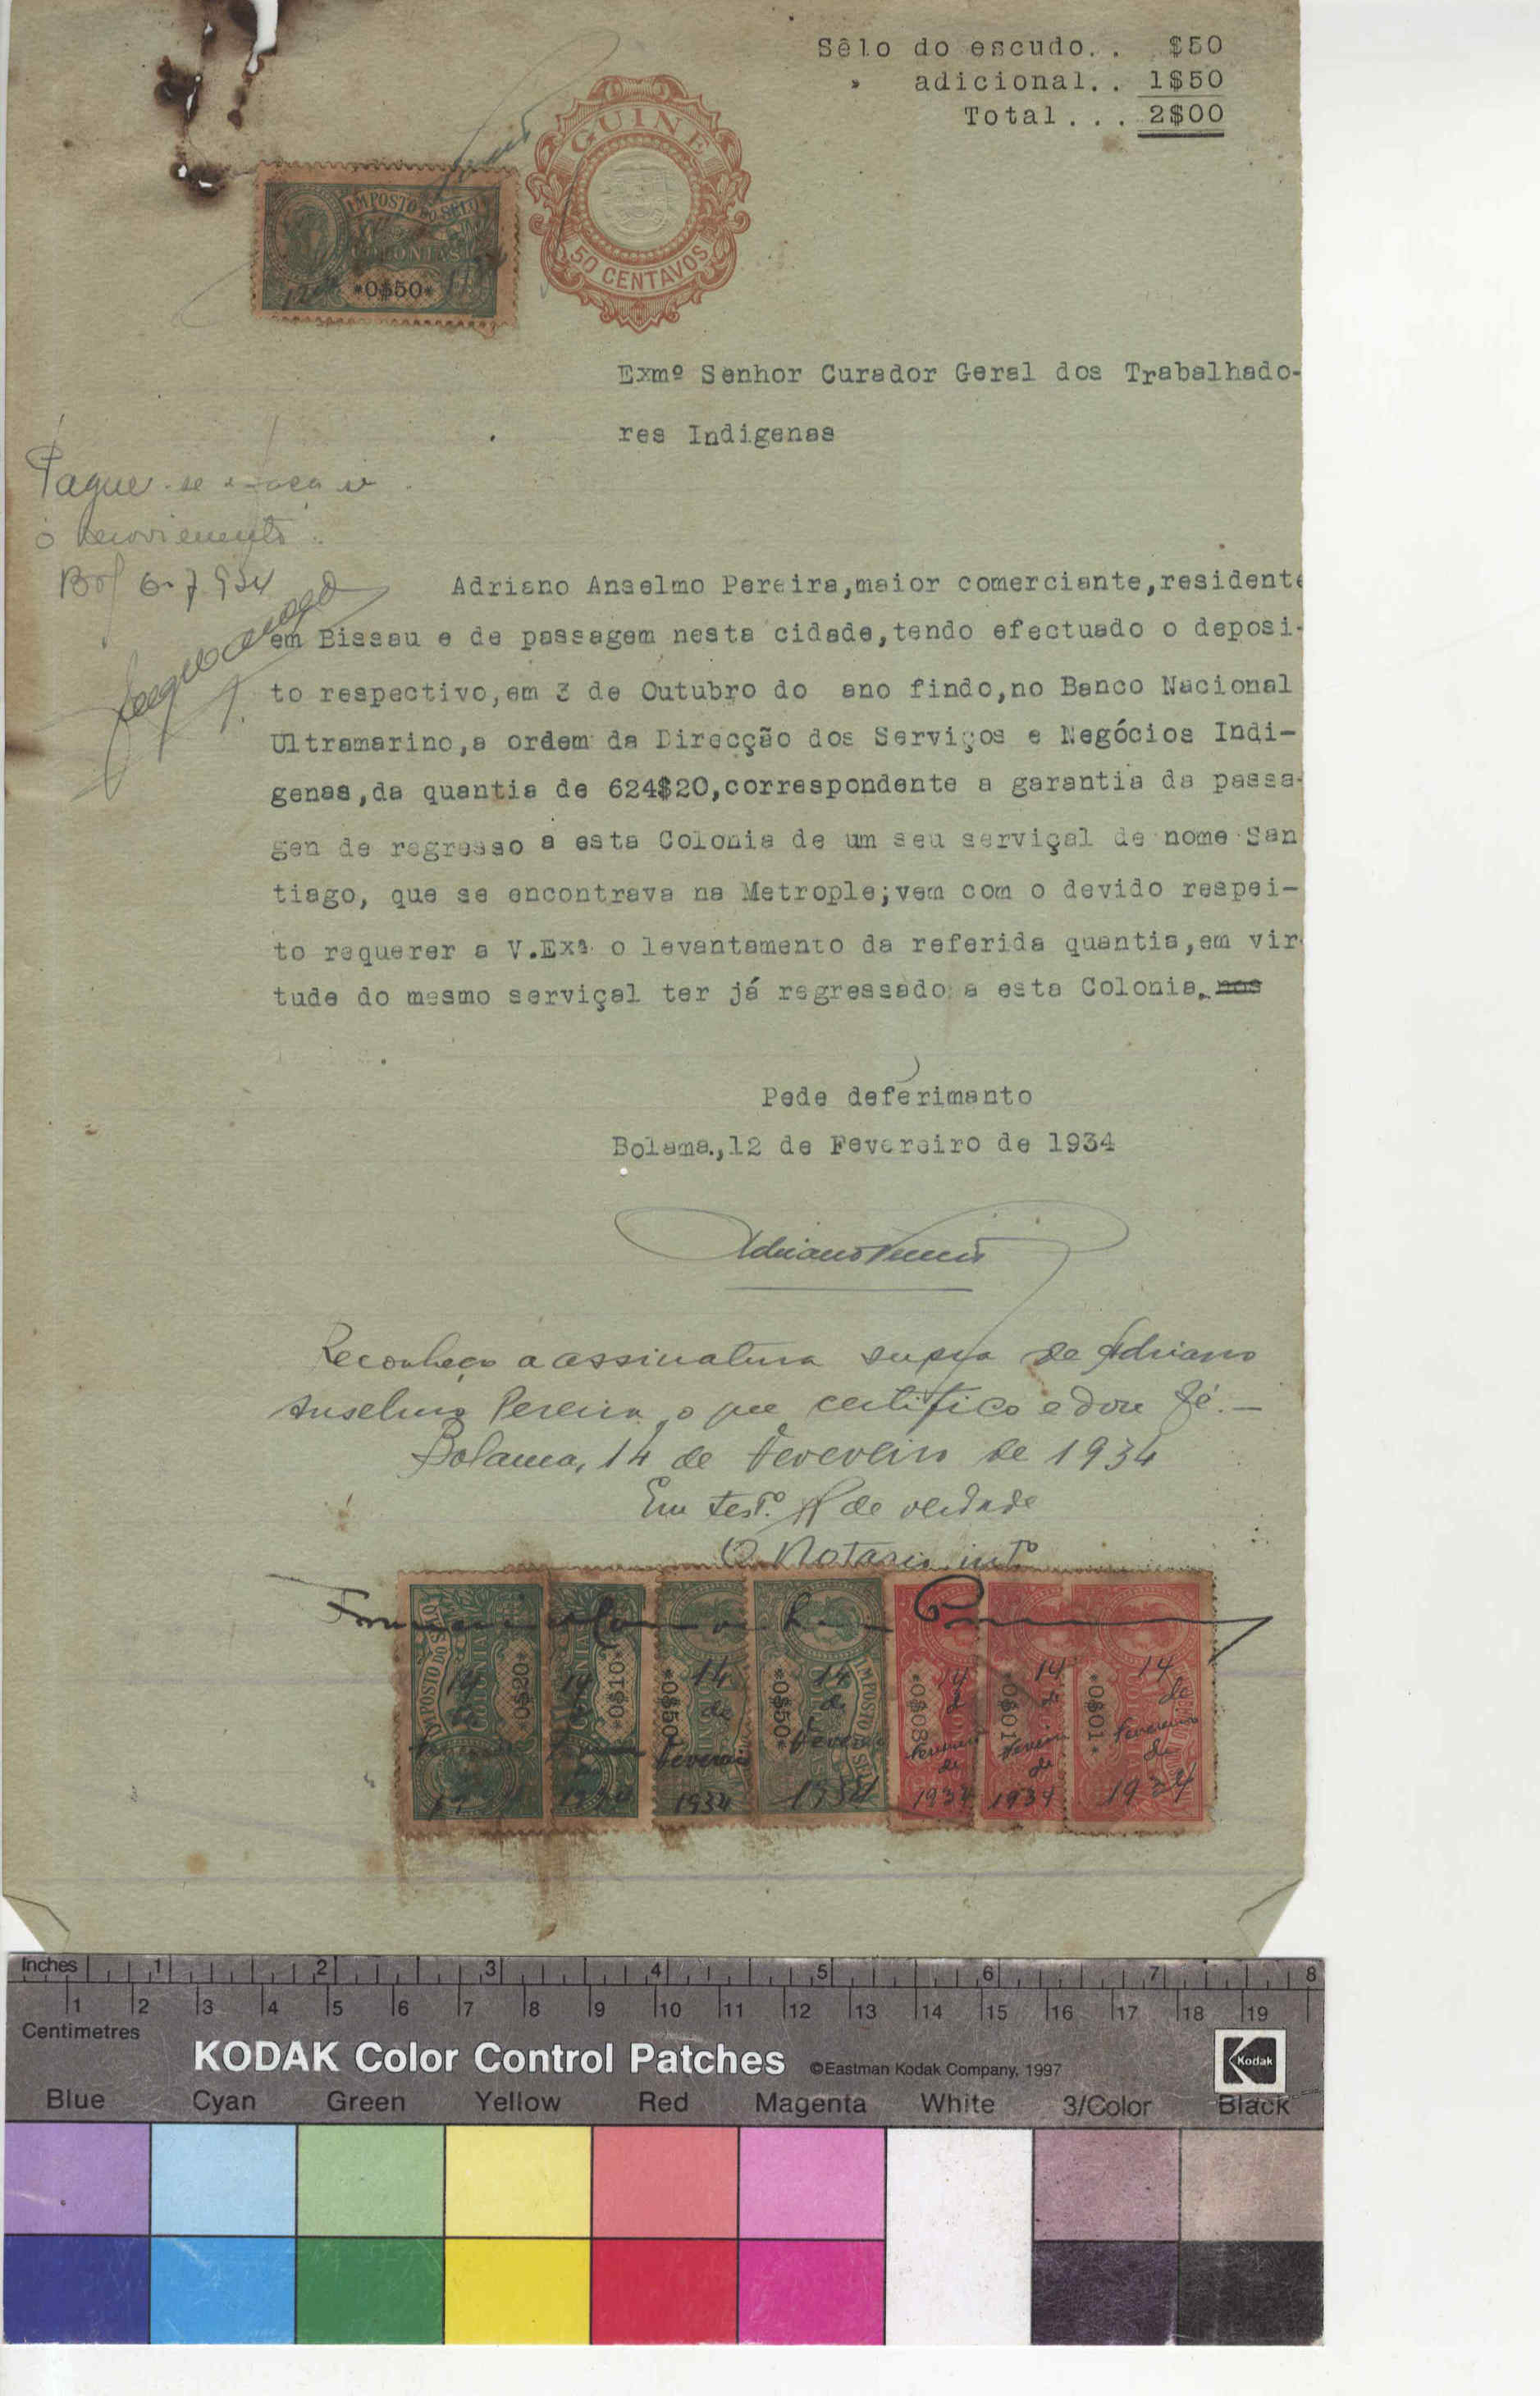 Sêlo do escudo.. $50
" adicional.. 1$50
Total... 2$00
GUINE
50 CENTAVOS
IMPOSTO DO SELO
COLONIAS
*0$50*
Exmº Senhor Curador Geral dos Trabalhado-
res Indigenas
Pague-se
o
Bol 6-7-934
Adriano Anselmo Pereira,maior comerciante,residente
em Bissau e de passagem nesta cidade,tendo efectuado o deposi-
to respectivo,em 3 de Outubro do ano findo,no Banco Nacional
Ultramarino,a ordem da Direcção dos Serviços e Negócios Indi-
genas,da quantia de 624$20,correspondente a garantia da passa-
gen de regresso a esta Colonia de um seu serviçal de nome San
tiago, que se encontrava na Metrople;vem com o devido respei-
to requerer a V.Exª o levantamento da referida quantia,em vir
tude do mesmo serviçal ter já regressado a esta Colonia. nos
Pede deferimanto
Bolama.,12 de Fevereiro de 1934
Adriano Pereira
Reconheço a assinatura supra de Adriano
Anselmo Pereira, o que certifico e dou fé.—
Bolama, 14 de Fevereiro de 1934
Em testº de verdade
O Notario intº
IMPOSTO DO SELO COLONIAS *0$20* *0$10* *0$50* *0$50* IMPOSTO DO SELO *0$03* *0$01* *0$01*
14 14 14 14 14 14 14
de de de de de
Fevereiro Fevereiro Fevereiro Fevereiro Fevereiro
de de de
1934 1934 1934 1934 1934 1934
Inches 1 2 3 4 5 6 7 8
1 2 3 4 5 6 7 8 9 10 11 12 13 14 15 16 17 18 19
Centimetres
KODAK Color Control Patches ©Eastman Kodak Company, 1997 Kodak
Blue Cyan Green Yellow Red Magenta White 3/Color Black